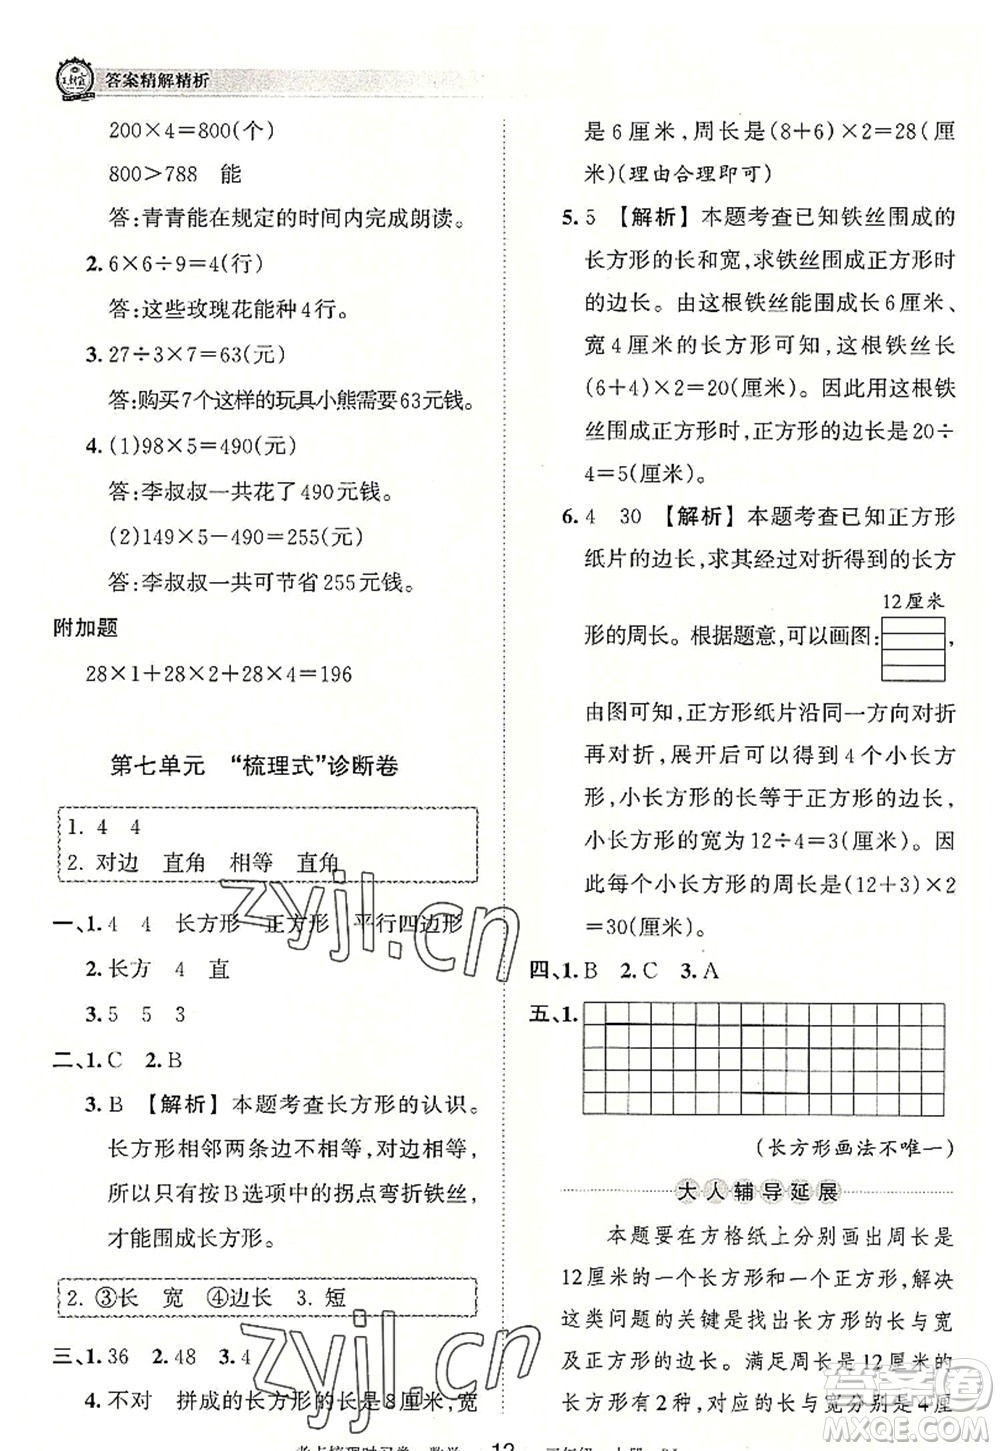 答案精解精析
200×4=800(个)
800>788 能
答:青青能在规定的时间内完成朗读。
2. 6×6÷9=4(行)
答:这些玫瑰花能种4行。
3. 27÷3×7=63(元)
答:购买7个这样的玩具小熊需要63元钱。
4. (1)98×5=490(元)
答:李叔叔一共花了490元钱。
(2)149×5-490=255(元)
答:李叔叔一共可节省255元钱。
附加题
28×1+28×2+28×4=196
第七单元 “梳理式”诊断卷
1. 4 4
2. 对边 直角 相等 直角
一、1. 4 4 长方形 正方形 平行四边形
2. 长方 4 直
3. 5 5 3
二、1. C 2. B
3. B 【解析】本题考查长方形的认识。
长方形相邻两条边不相等,对边相等,
所以只有按B选项中的拐点弯折铁丝,
才能围成长方形。
2. ③长 宽 ④边长 3. 短
三、1. 36 2. 48 3. 4
4. 不对 拼成的长方形的长是8厘米,宽
是6厘米,周长是(8+6)×2=28(厘
米)(理由合理即可)
5. 5 【解析】本题考查已知铁丝围成的
长方形的长和宽,求铁丝围成正方形时
的边长。由这根铁丝能围成长6厘米、
宽4厘米的长方形可知,这根铁丝长
(6+4)×2=20(厘米)。因此用这根铁
丝围成正方形时,正方形的边长是20÷
4=5(厘米)。
6. 4 30 【解析】本题考查已知正方形
纸片的边长,求其经过对折得到的长方
12厘米
形的周长。根据题意,可以画图: ,
由图可知,正方形纸片沿同一方向对折
再对折,展开后可以得到4个小长方
形,小长方形的长等于正方形的边长,
小长方形的宽为12÷4=3(厘米)。因
此每个小长方形的周长是(12+3)×2
=30(厘米)。
四、1. B 2. C 3. A
五、1.
(长方形画法不唯一)
大人辅导延展
本题要在方格纸上分别画出周长是
12厘米的一个长方形和一个正方形,解决
这类问题的关键是找出长方形的长与宽
及正方形的边长。满足周长是12厘米的
长方形有2种,对应的长与宽分别是4厘
zyjl.cn
zyjl.cn
12